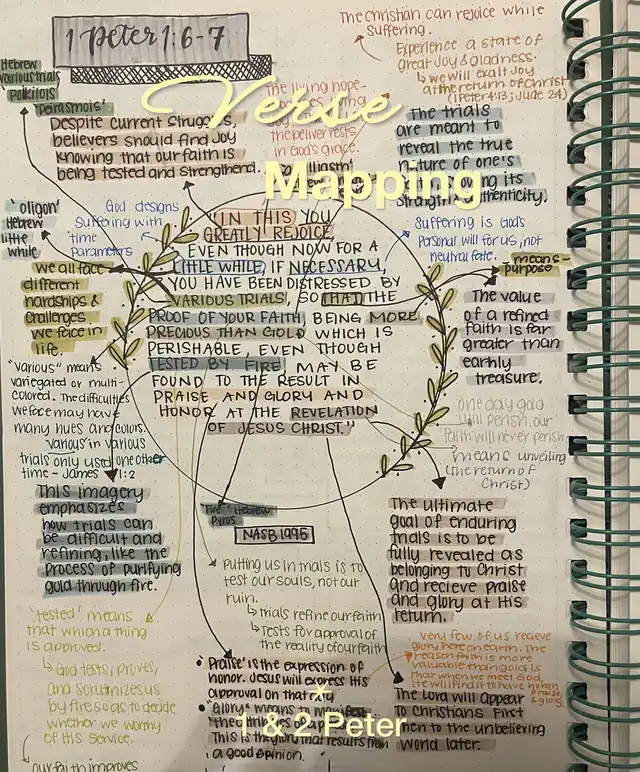 1 Peter 1:6-7
The Christian can rejoice while
suffering.
Experience a state of
great Joy & gladness.
↳ we will exalt Joy
at the return of Christ
(1 Peter 4:13; Jude 24)
Hebrew
various trials
Poikilois
"Peirasmois"
Despite current struggles,
believers should find Joy
knowing that our faith is
being tested and strengthend.
The living hope
the beliver rests
in God's grace.
The trials
are meant to
reveal the true
nature of one's
proving its
strength & authenticity.
Verse
Mapping
'oligon'
Hebrew
little
while
God designs
Suffering with
time
parameters
Suffering is God's
Personal will for us, not
neutral fate.
means-
purpose
we all face
different
hardships &
challenges
we face in
life.
"IN THIS YOU
GREATLY REJOICE,
EVEN THOUGH NOW FOR A
LITTLE WHILE, IF NECESSARY,
YOU HAVE BEEN DISTRESSED BY
VARIOUS TRIALS, SO THAT THE
PROOF OF YOUR FAITH, BEING MORE
PRECIOUS THAN GOLD WHICH IS
PERISHABLE, EVEN THOUGH
TESTED BY FIRE, MAY BE
FOUND TO THE RESULT IN
PRAISE AND GLORY AND
HONOR AT THE REVELATION
OF JESUS CHRIST."
The value
of a refined
faith is far
greater than
earthly
treasure.
"various" means
variegated or multi-
colored. The difficulties
we face may have
many hues and colors.
'various' in various
trials only used one other
time - James 1:2
one day gold
will perish. our
faith will never perish
means unveiling
(The return of
Christ)
This imagery
emphasizes
how trials can
be difficult and
refining, like the
process of purifying
gold through fire.
'Fire' Hebrew
Pyros
NASB 1995
The ultimate
goal of enduring
trials is to be
fully revealed as
belonging to Christ
and recieve praise
and glory at His
return.
putting us in trials is to
test our souls, not our
ruin.
↳ trials refine our faith
↳ Tests for approval of
the reality of our faith
'tested' means
that which a thing
is approved.
↳ God tests, proves,
and scrutinizes us
by fire so as to decide
whether we worthy
of His service.
• 'Praise' is the expression of
honor. Jesus will express His
approval on that day
• 'Glory' means to manifest
the attributes of a
This is the glory that results from
a good opinion.
very few of us recieve
glory here on earth. The
reason faith is more
valuable than gold is
that when we meet God,
He will find it to have honor,
praise
& glory.
The Lord will appear
to Christians first
then to the unbelieving
world later.
1 & 2 Peter
↳ our faith improves